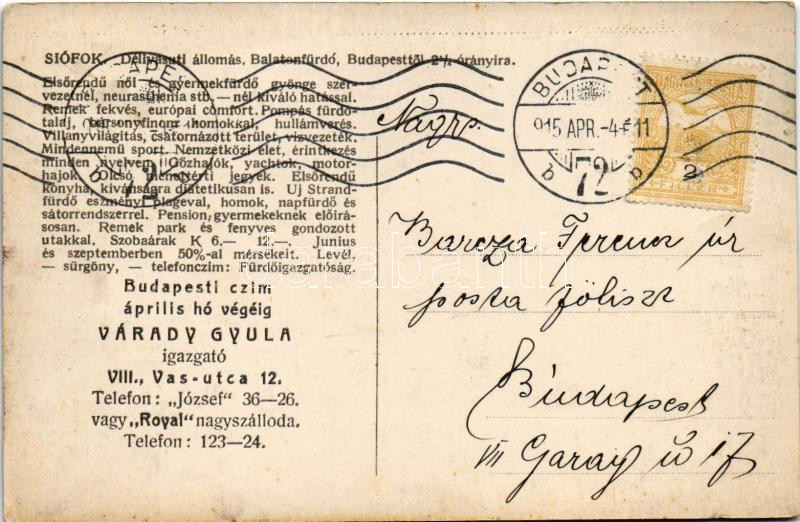 SIÓFOK. Délivasuti állomás. Balatonfürdő, Budapesttől 2¼ órányira.
Elsőrendű női és gyermekfürdő gyönge szer-
vezetnél, neurasthenia stb, — nél kiváló hatással.
Remek fekvés, európai comfort. Pompás fürdő-
talaj, bársonyfinom homokkal, hullámverés.
Villanyvilágitás, csatornázott terület, vizvezeték.
Mindennemü sport. Nemzetközi élet, érintkezés
minden nyelven. Gőzhajók, yachtok, motor-
hajok. Olcsó menettérti jegyek. Elsőrendű
konyha, kivánságra diätetikusan is. Uj Strand-
fürdő eszményi plageval, homok, napfürdő és
sátorrendszerrel. Pension, gyermekeknek előirá-
sosan. Remek park és fenyves gondozott
utakkal. Szobaárak K 6.— 12.—. Junius
és szeptemberben 50%-al mérsékelt. Levél,
— sürgöny, — telefonczim: Fürdőigazgatóság.
Budapesti czim
április hó végéig
VÁRADY GYULA
igazgató
VIII., Vas-utca 12.
Telefon: „József" 36—26.
vagy „Royal" nagyszálloda.
Telefon: 123—24.
BUDAPEST
915 APR. -4
11
b 72 b
FILLÉR
2
Nagys.
Barcza Ferenc úr
posta föliszt
Budapest
VII Garay u 17
darabanth